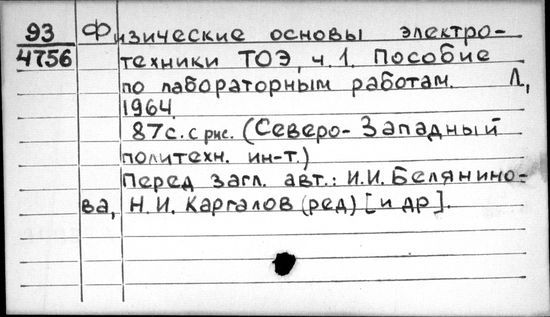 93 Физические основы электро-
4756 техники ТОЭ, ч.1. Пособие
по лабораторным работам. Л,
1964.
87с. с рис. (Северо-Западный
политехн. ин-т.)
Перед загл. авт.: И.И. Белянино-
ва, Н.И. Каргалов (ред) [и др].